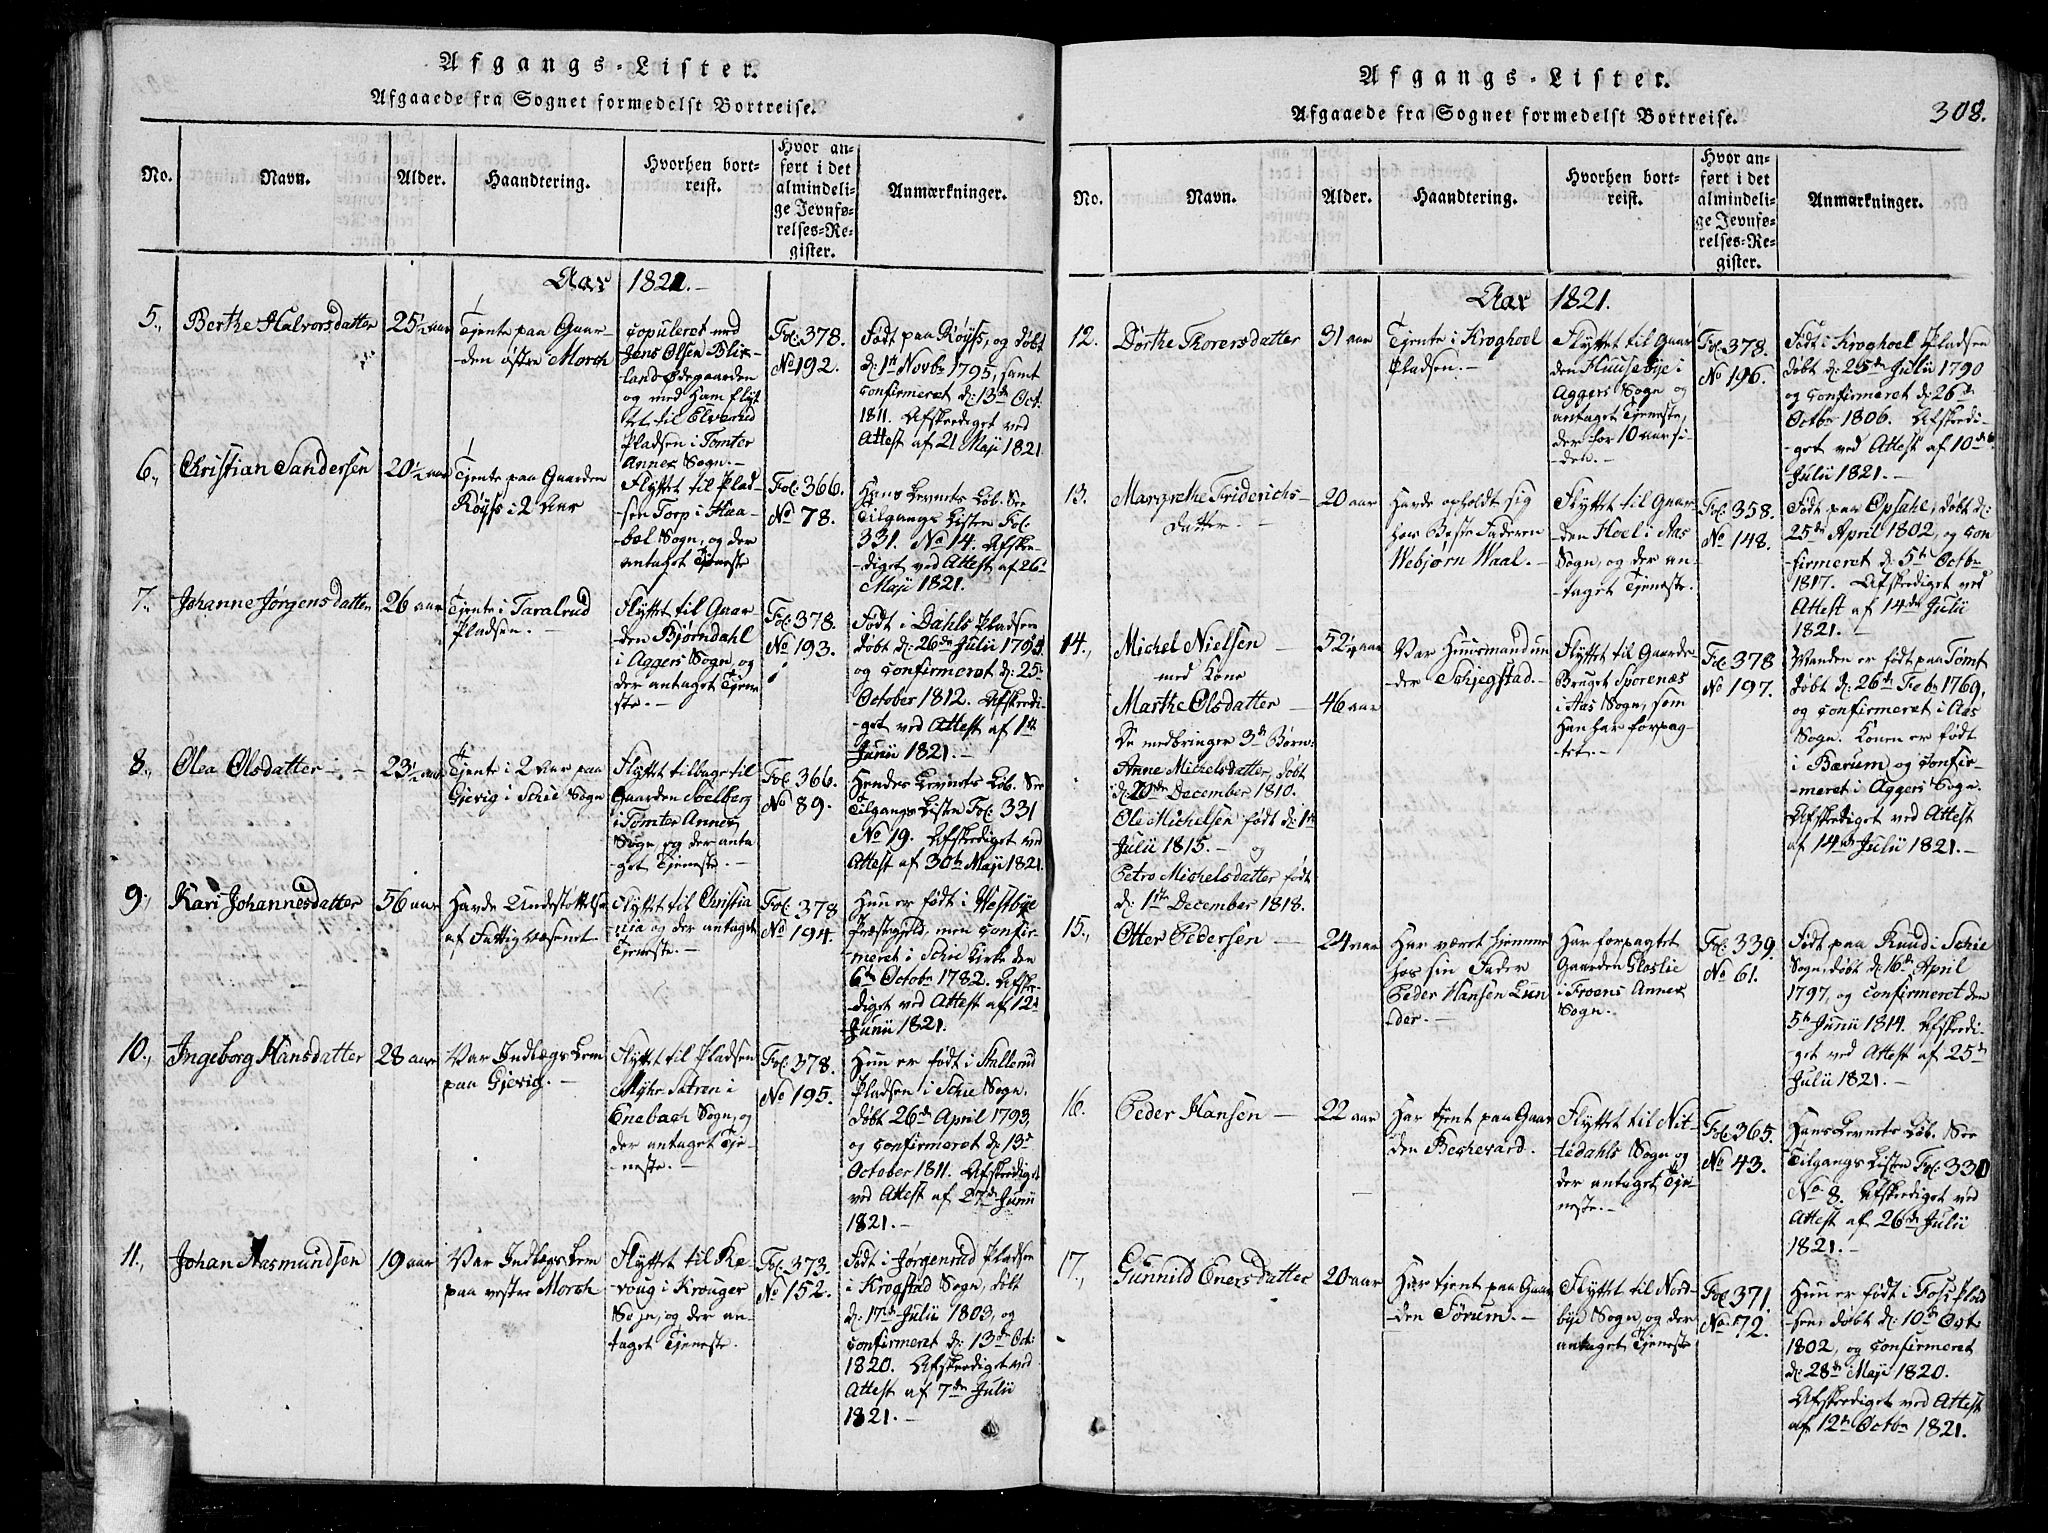 Afgangs-Lister.
Afgaaede fra Sognet formedelst Bortreise.
No.
Navn.
Alder.
Haandtering.
Hvorhen bort-
reist.
Hvor an-
ført i det
almindeli-
ge Jevnfø-
relses-Re-
gister.
Anmærkninger.
Aar 1821.-
5.,
Berthe Halvorsdatter
25½ aar
Tjente paa Gaar-
den østre Morch
copuleret med
Jens Olsen Blix-
land Ødegaarden
og med ham flyt
tet til Elverhid
Pladsen i Tomter
Annex Sogn.-
Fol: 378.
No 192.
Født paa Røyss, og døbt
d: 1te Novbr 1795, samt
confirmeret d: 13de Oct:
1811. Afskrediget ved
Attest af 21 Maji 1821
6.,
Christian Sandersen
20½ aar
Tjente paa Gaarden
Røyss i 2 Aar
Flyttet til Plad-
sen Torp i Haa-
bøl Sogn, og der
antaget Tjeneste
Fol: 366.
No 78.
Hans Levnets Løb. See
Tilgangs Listen Fol:
331. No 14. Afskre-
diget ved Attest af 26d
Maji 1821.
7.,
Johanne Jørgensdatter
26 aar
Tjente i Taralrud
Pladsen.-
Flyttet til Gaar-
den Bjørndahl
i Aggers Sogn, og
der antaget Tjene
ste.-
Fol: 378
No 193.
Født i Dahls Pladsen
døbt d: 26de Julii 1795
og confirmeret d: 25
October 1812. Afskredi-
get ved Attest af 1te
Junii 1821.-
8.,
Olea Olsdatter -,-
23½ aar
Tjente i 2 Aar paa
Gjevig i Schie Sogn
Flyttet tilbage til
Gaarden Solberg
i Tomter Annex
Sogn, og der anta
get Tjeneste.-
Fol: 366.
No 89.
Hendes Levnets Løb. See
Tilgangs Listen Fol: 331
No 19. Afskrediget ved
Attest af 30th Maji 1821.
9.,
Kari Johannesdatter
56 aar
Havde Understøttelse
af Fattigvæsenet
Flyttet til Christia
nia og der antaget
Tjeneste.-
Fol: 378
No 194.
Hun er født i Westbye
Præstegield, men confir-
meret i Schie Kirke den
6te Octobr 1782. Afskre-
diget ved Attest af 12te
Junii 1821.
10.,
Ingeborg Hansdatter
28 aar
Var Indlægs Lem
paa Gjevig.-
Flyttet til Pladsen
Myhr Sætren i
Enebach Sogn, og
der antaget Tje-
neste.-
Fol: 378.
No 195.
Hun er født i Stallerud
Pladsen i Schie Sogn.
døbt 26de April 1793,
og confirmeret d: 13d
October 1811. Afskrediget
ved Attest af 27de Junii
1821.-
11.,
Johan Aasmundsen
19 aar
Var Indlægs Lem
paa vestre Morch
Flyttet til Ra-
voug i Krouger
Sogn, og der an-
taget Tjeneste.
Fol: 373.
No 152.
Født i Jørgensrud Pladsen
i Krogstad Sogn, døbt
d: 17de Julii 1803, og
confirmeret d: 13de Oct:
1820. Afskrediget ved
Attest af 7de Julii
1821.-
Afgangs-Lister.
Afgaaede fra Sognet formedelst Bortreise.
308.
No.
Navn.
Alder.
Haandtering.
Hvorhen bort-
reist.
Hvor an-
ført i det
almindeli-
ge Jevnfø-
relses-Re-
gister.
Anmærkninger.
Aar 1821.
12.
Dorthe Thorersdatter
31 aar
Tjente i Kroghoel
Pladsen.-
Flyttet til Gaar
den Huusebye i
Aggers Sogn og
antaget Tjeneste,
der for 10 aar si-
den.-
Fol: 378.
No 196.
Født i Kroghoel Pladsen
døbt d: 25de Julii 1790
og confirmeret d: 26de
Octbr 1806. Afskredi-
get ved Attest af 10de
Julii 1821.-
13.
Margrethe Friderichs-
datter.-
20 aar
Havde opholdt sig
hos Beste Faderen
Webjørn Waal.-
Flyttet til Gaar
den Hoel i Aas
Sogn, og der an-
taget Tjeneste.
Fol: 358.
No 148.
Født paa Opsahl, døbt d:
25de April 1802, og con
firmeret d: 5te Octbr
1817. Afskrediget ved
Attest af 14de Julii
1821.-
14.,
Michel Nielsen
med Kone
Marthe Olsdatter -
De medbringer 3de Børn:
Anne Michelsdatter, døbt
d: 20de December 1810.
Ole Michelsen født d: 1te
Julii 1815.- og
Petro Michelsdatter født
d: 1ste December 1818.
52¼ aar
46 aar
Var Huusmand un
der Schjegstad.-
Flyttet til Gaarde-
Bruget Sporenæs
i Aas Sogn, som
Han har forpag-
tet.-
Fol: 378
No 197.
Manden er født paa Tomt
døbt d: 26de Febr 1769,
og confirmeret i Aas
Sogn. Konen er født
i Bærum og confir-
meret i Aggers Sogn.
Afskrediget ved Attest
af 14de Julii 1821.-
15.,
Otter Pedersen -
24 aar
Har været hjemme
hos sin Fader
Peder Hansen Lun
der.-
Har forpagtet
Gaarden Glaslie
i Froens Annex
Sogn.
Fol: 339.
No 61.
Født paa Ruud i Schie
Sogn, døbt d: 16de April
1797, og confirmeret den
5te Junii 1814. Afskredi-
get ved Attest af 25de
Julii 1821.-
16.
Peder Hansen -
22 aar
Har tjent paa Gaar
den Bechevard.
Flyttet til Nit-
tedahls Sogn og
der antaget Tje-
neste.-
Fol: 365.
No 43.
Hans Levnets Løb. See
Tilgangs Listen Fol: 330
No 8. Afskrediget ved
Attest af 26de Julii
1821.-
17.,
Gunnild Enersdatter
20 aar
Har tjent paa Gaar
den Sørum.-
Flyttet til Nord-
bye Sogn, og der
antaget Tjeneste
Fol: 371.
No 72.
Hun er født i Foss Plad
sen; døbt d: 10de Oct:
1802, og confirmeret
d: 28de Maji 1820.
Afskrediget ved Attest
af 12te Octbr 1821.